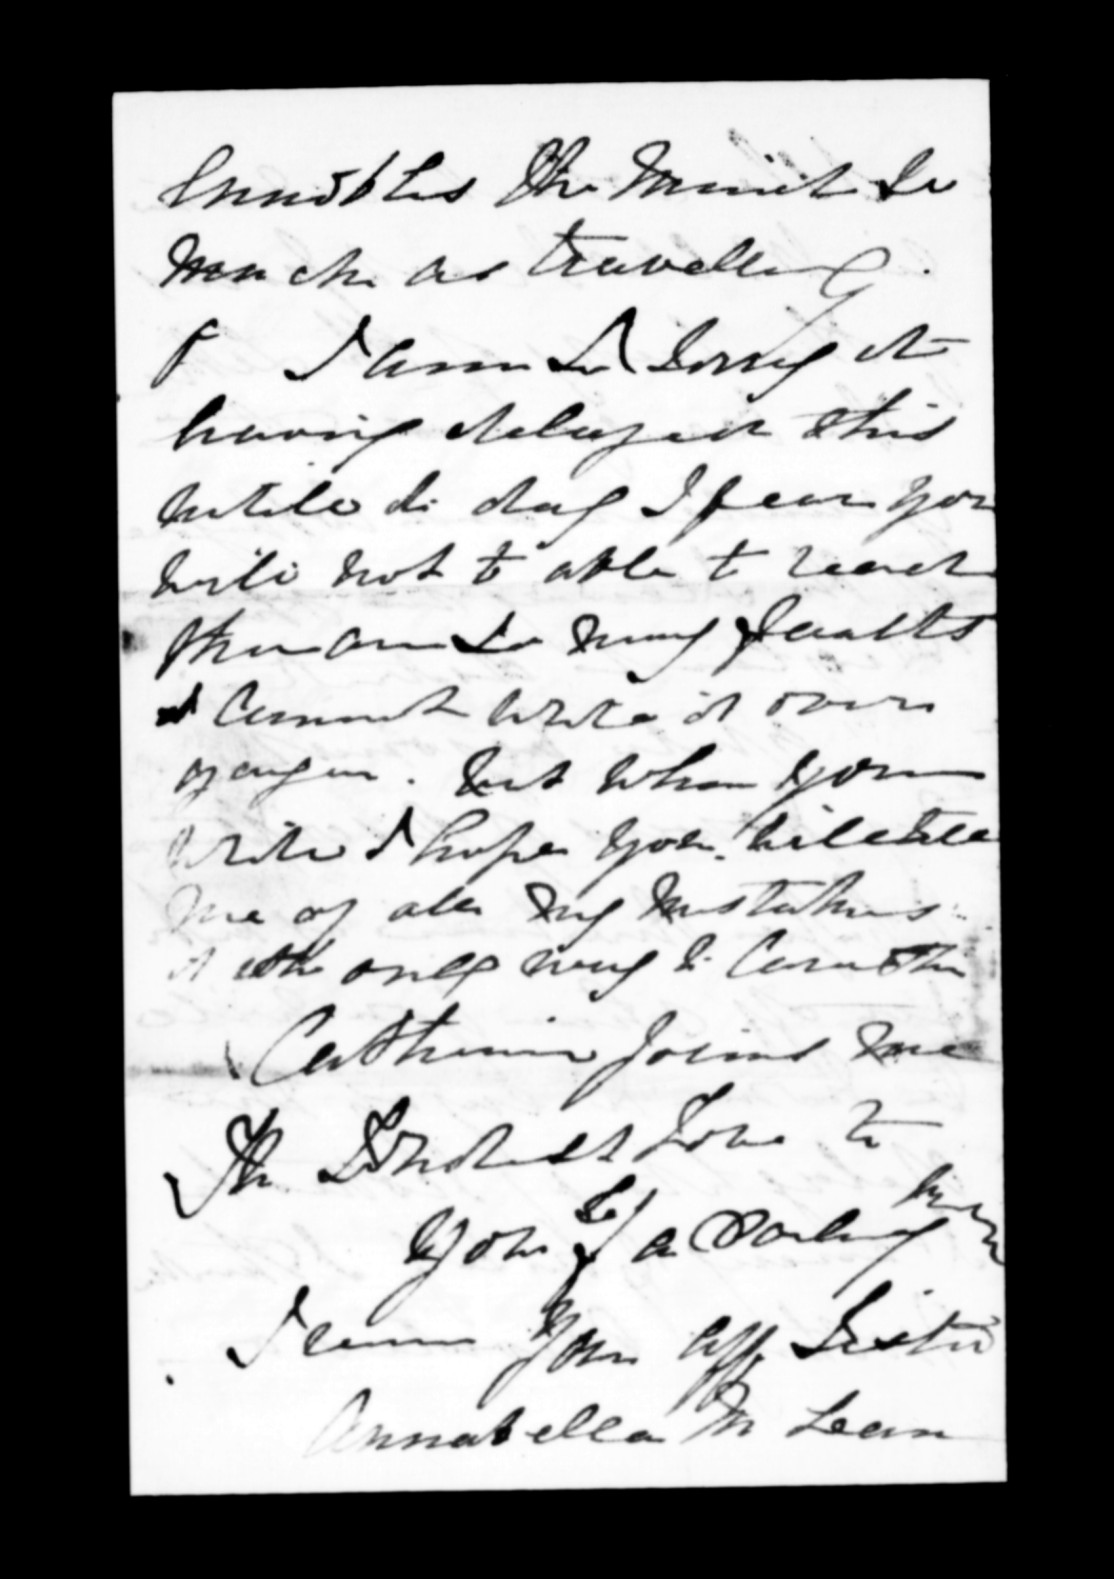 Ennobles the mind so
much as travelling.
I am so sorry at
having delayed this
untile to day I fear you
will not be able to read
there are so many faults
I cannot write it over
again. but when you
write I hope you will tell
me of all my mistakes
it is the only way to
Catherine joins me
In kindest love to
you & a Darling
I am your aff Sister
Annabella McLean